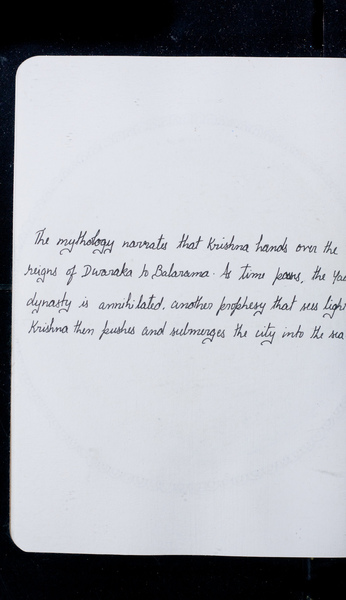 The mythology narrates that Krishna hands over the
reigns of Dwaraka to Balarama. As time passes, the Yad
dynasty is annihilated, another prophesy that sees light
Krishna then pushes and submerges the city into the sea